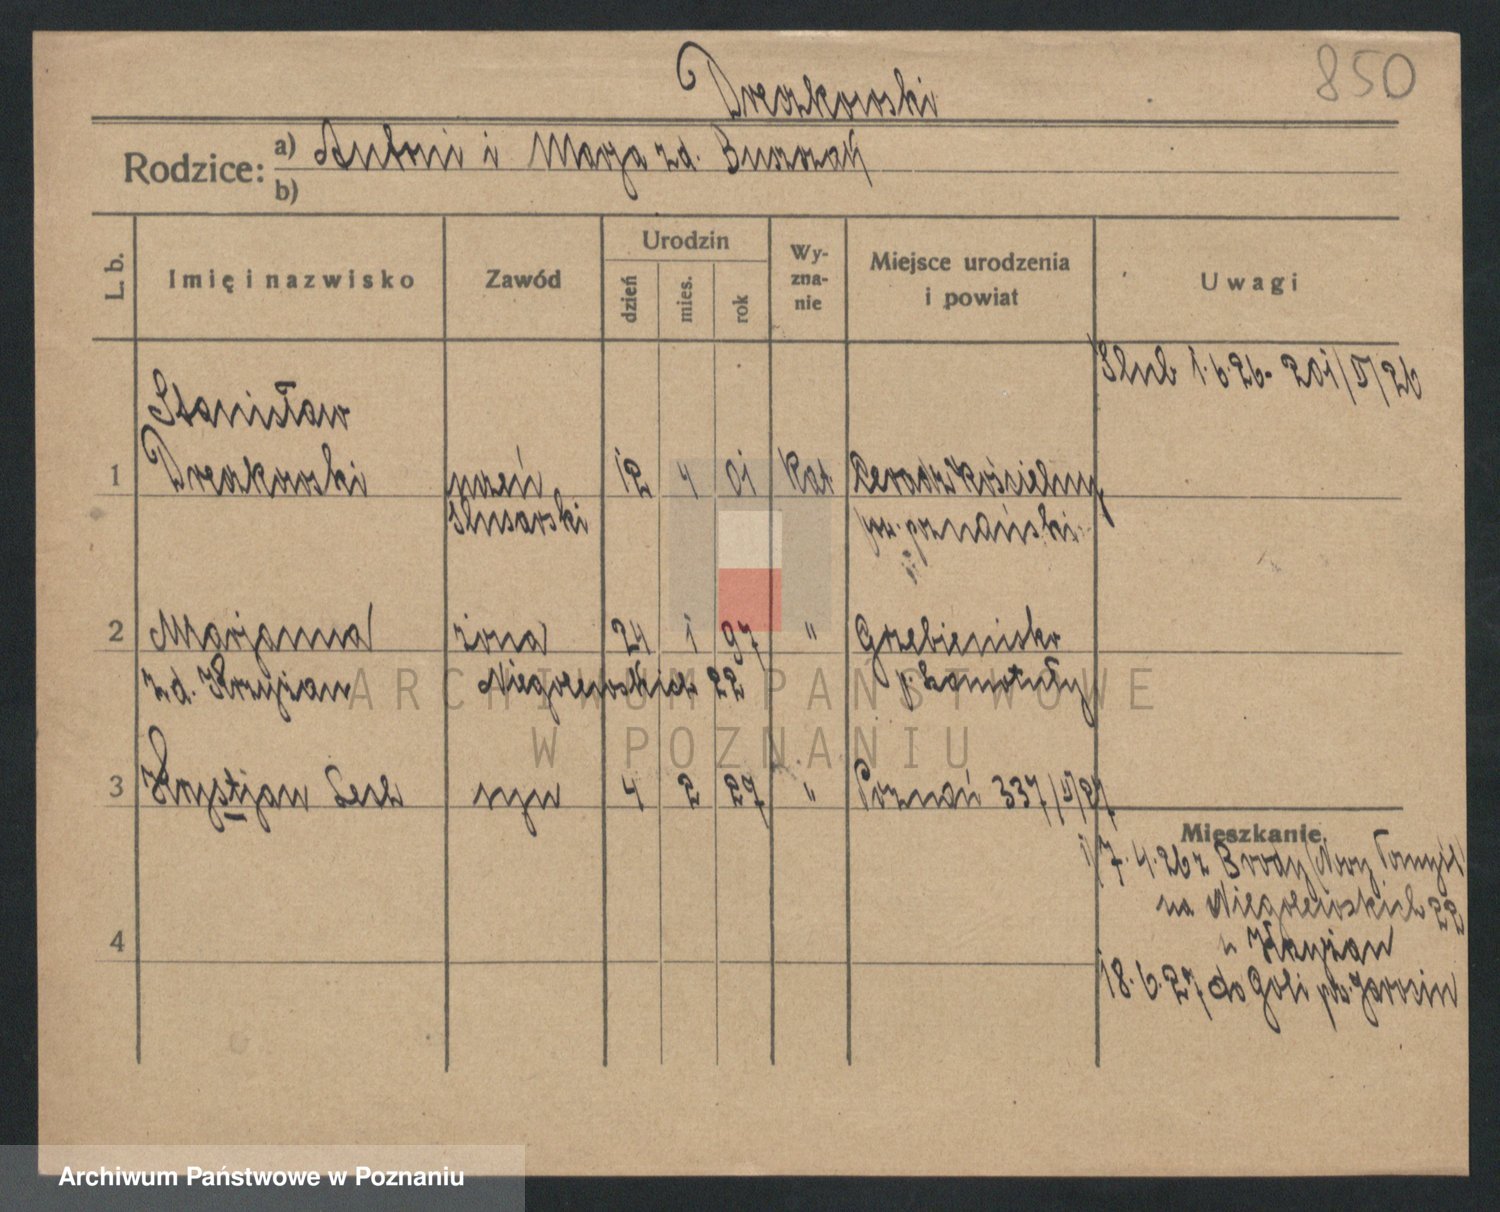 850
Drezkowski
Rodzice: a) Antoni i Marja zd. Buszzań
b)
L. b.
Imię i nazwisko
Zawód
Urodzin
dzień
mies.
rok
Wy-
zna-
nie
Miejsce urodzenia
i powiat
Uwagi
Ślub 1.6.26. 201/V/26
Stanisław
1 Drezkowski 12 4 01 Kat kościelny
ślusarski poznański
2 Marjanna żona 24 1 97 " Grzebienisko
zd. Niegolewskich 22 p. Szamotuły
3 Krystjan Lech syn 4 2 27 " Poznań 337/II/27
Mieszkanie.
1) 7.4.26 z Brody (Nowy Tomyśl)
na Niegolewskich 22
u
18.6.27 do Goli pow. Jarocin
4
ARCHIWUM PAŃSTWOWE
W POZNANIU
Archiwum Państwowe w Poznaniu